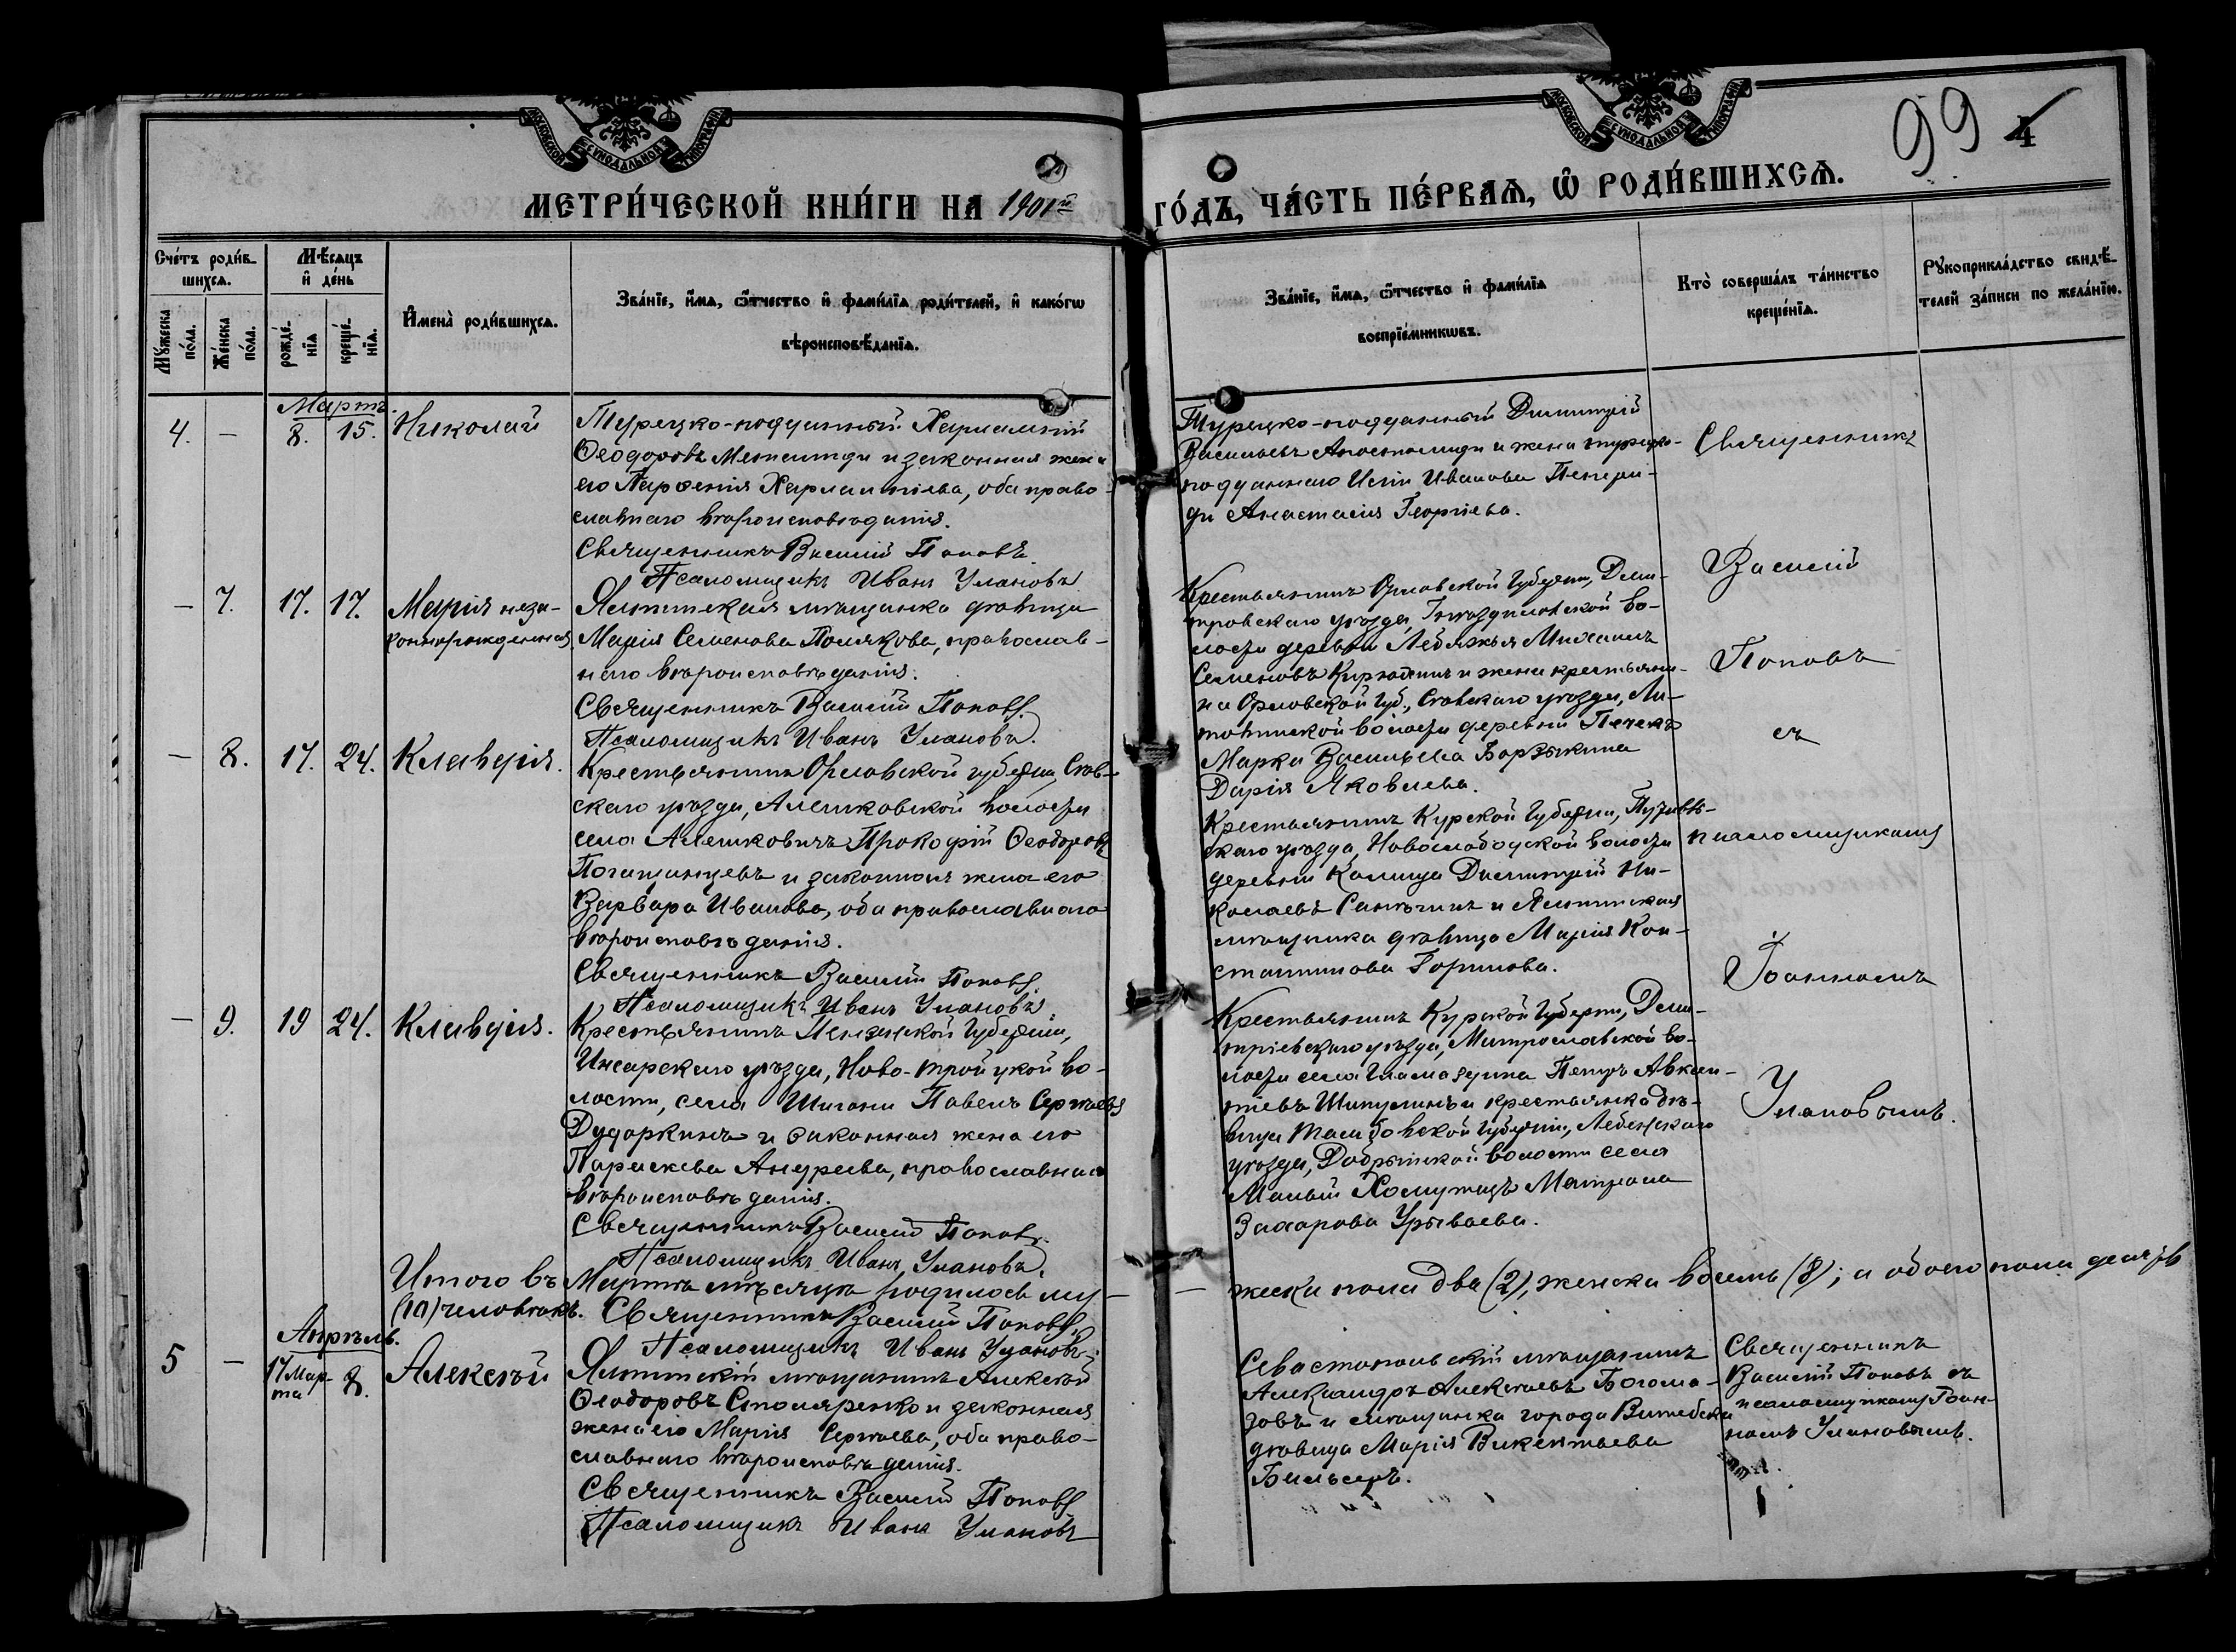 99 4
МОСКОВСКОЙ СѴНОДАЛЬНОЙ ТИПОГРАФІИ
МОСКОВСКОЙ СѴНОДАЛЬНОЙ ТИПОГРАФІИ
МЕТРИ́ЧЕСКОЙ КНИ́ГИ НА 1901й ГО́ДЪ, ЧА́СТЬ ПЕ́РВАѦ, Ѡ҆ РОДИ́ВШИХСѦ.
Сче́тъ роди́в
шихсѧ.
Мѣ́сѧцъ
и҆ де́нь
Мꙋ́жеска
по́ла.
Же́нска
по́ла.
рожде́-
нїѧ
креще́-
нїѧ.
И҆мена̀ роди́вшихсѧ.
Зва́нїе, и҆́мѧ, ѻ҆́тчество и҆ фами́лїѧ роди́телей, и҆ како́гѡ
вѣроисповѣ́данїѧ.
Зва́нїе, и҆́мѧ, ѻ҆́тчество и҆ фами́лїѧ
воспрїе́мникѡвъ.
Кто̀ соверша́лъ та́инство
креще́нїѧ.
Рꙋкоприкла́дство свидѣ́-
телей за́писи по жела́нїю.
Мартъ.
4. — 8. 15. Николай
Турецко-подданный Харлампій
Ѳеодоровъ и законная жена
его Парѳенія Харлампіева, оба право-
славнаго вѣроисповѣданія.
Священникъ Василій Поповъ.
Псаломщикъ Иванъ Улановъ
Турецко-подданный Димитрій
Васильевъ Апостолиди и жена турецко-
подданнаго Иліи Иванова
Анастасія Георгіева.
— 7. 17. 17. Марія неза-
коннорожденная.
Ялтинская мѣщанка дѣвица
Марія Семенова Полякова, православ-
наго вѣроисповѣданія.
Священникъ Василій Поповъ.
Псаломщикъ Иванъ Улановъ.
Крестьянинъ Орловской губерніи, Дми-
тровскаго уѣзда, во-
лости деревни Лебяжья Михаилъ
Семеновъ и жена крестьяни-
на Орловской губ., Сѣвскаго уѣзда, Ли-
товской волости деревни
Марка Васильева Борзыкина
Дарія Яковлева.
— 8. 17. 24. Клавдія.
Крестьянинъ Орловской губерніи, Сѣв-
скаго уѣзда, Алешковской волости
села Алешковичъ Прокофій Ѳеодоровъ
и законная жена его
Варвара Иванова, оба православнаго
вѣроисповѣданія.
Священникъ Василій Поповъ.
Псаломщикъ Иванъ Улановъ.
Крестьянинъ Курской губерніи, Путивль-
скаго уѣзда, Новослободской волости
деревни Калища Димитрій Ни-
колаевъ и Ялтинская
мѣщанка дѣвица Марія Кон-
стантинова Горшкова.
— 9. 19 24. Клавдія.
Крестьянинъ Пензенской губерніи,
Инсарскаго уѣзда, Ново-Троицкой во-
лости, села Павелъ Сергѣевъ
Дударкинъ и законная жена его
Параскева Андреева, православнаго
вѣроисповѣданія.
Священникъ Василій Поповъ.
Псаломщикъ Иванъ Улановъ.
Крестьянинъ Курской губерніи, Дми-
тріевскаго уѣзда, во-
лости села Петръ Авксен-
тіевъ Шипулинъ и крестьянка дѣ-
вица Тамбовской губерніи, Лебедянскаго
уѣзда, Добринской волости села
Малый Хомутецъ Матрона
Захарова Урываева.
Священникъ
Василій
Поповъ
съ
псаломщикомъ
Іоанномъ
Улановымъ.
Итого въ Мартѣ мѣсяцѣ родилось му-
жска пола два (2), женска восемь (8); а обоего пола десять
(10) человѣкъ. Священникъ Василій Поповъ.
Псаломщикъ Иванъ Улановъ.
Апрѣль.
5 — 17 Мар-
та 8. Алексѣй
Ялтинскій мѣщанинъ Алексѣй
Ѳеодоровъ Столяренко и законная
жена его Марія Сергѣева, оба право-
славнаго вѣроисповѣданія.
Священникъ Василій Поповъ
Псаломщикъ Иванъ Улановъ
Севастопольскій мѣщанинъ
Александръ Алексѣевъ Богома-
зовъ и мѣщанка города Витебска
дѣвица Марія Викентьева
Священникъ
Василій Поповъ съ
псаломщикомъ Іоан-
номъ Улановымъ.